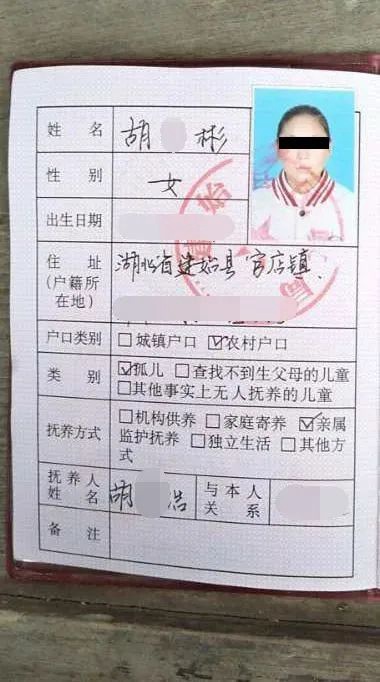 姓 名 胡 彬
性 别 女
出生日期
住 址 湖北省建始县官店镇
(户籍所
在地)
户口类别 □城镇户口 ☑农村户口
类 别 ☑孤儿 □查找不到生父母的儿童
□其他事实上无人抚养的儿童
抚养方式 □机构供养 □家庭寄养 ☑亲属
监护抚养 □独立生活 □其他方
式
抚养人
姓 名 胡 浩
与本人
关 系
备 注